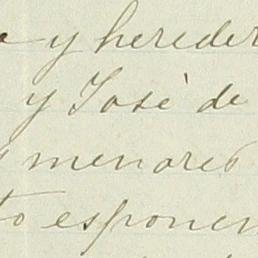 y hereder
y Josè de
menores
to esponen